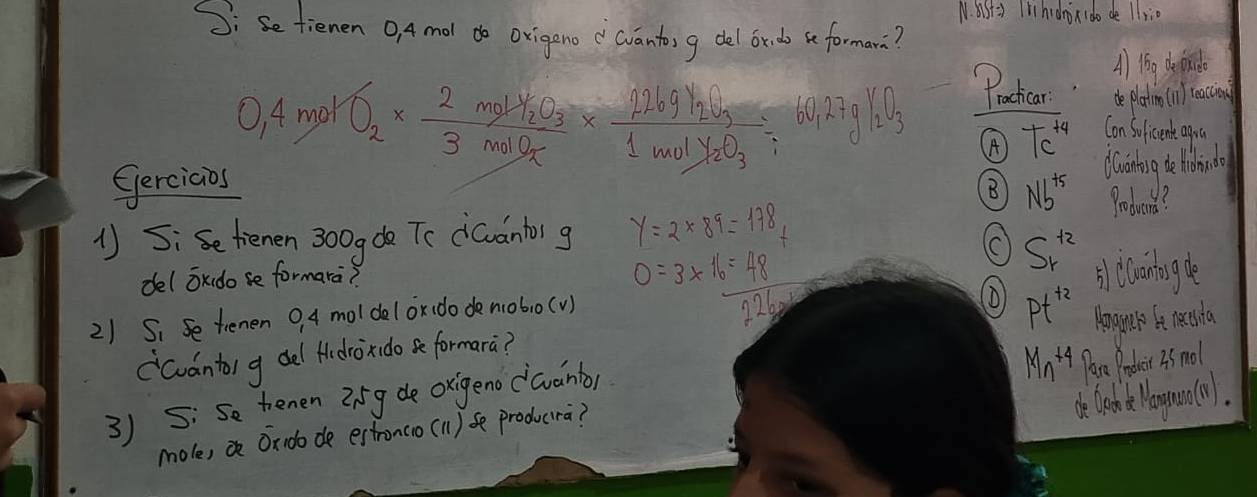 Si se tienen 0,4 mol de oxigeno ¿Cuántos g del óxido se formará?
0,4 mol O2 x 2 mol Y2O3 / 3 mol O2 x 226g Y2O3 / 1 mol Y2O3 = 60,27g Y2O3
Ejercicios
1) Si se tienen 300g de Tc ¿Cuántos g
del óxido se formará?
2) Si se tienen 0,4 mol del óxido de niobio (V)
¿Cuántos g del Hidróxido se formará?
3) Si se tienen 25g de oxigeno ¿Cuántos
moles de óxido de estroncio (II) se producirá?
Y = 2 x 89 = 178 +
O = 3 x 16 = 48
226g
N. sist =>
Practicar:
A Tc+4
B Nb+5
C Sr+2
D Pt+2
Mn+4
4) 15g de óxido
de platino (II) reacciona
Con suficiente agua
¿Cuántos g de Hidróxido
Producirá?
5) ¿Cuántos g de
Manganeso se necesita
Para Producir 25 mol
de Óxido de Manganeso (IV).